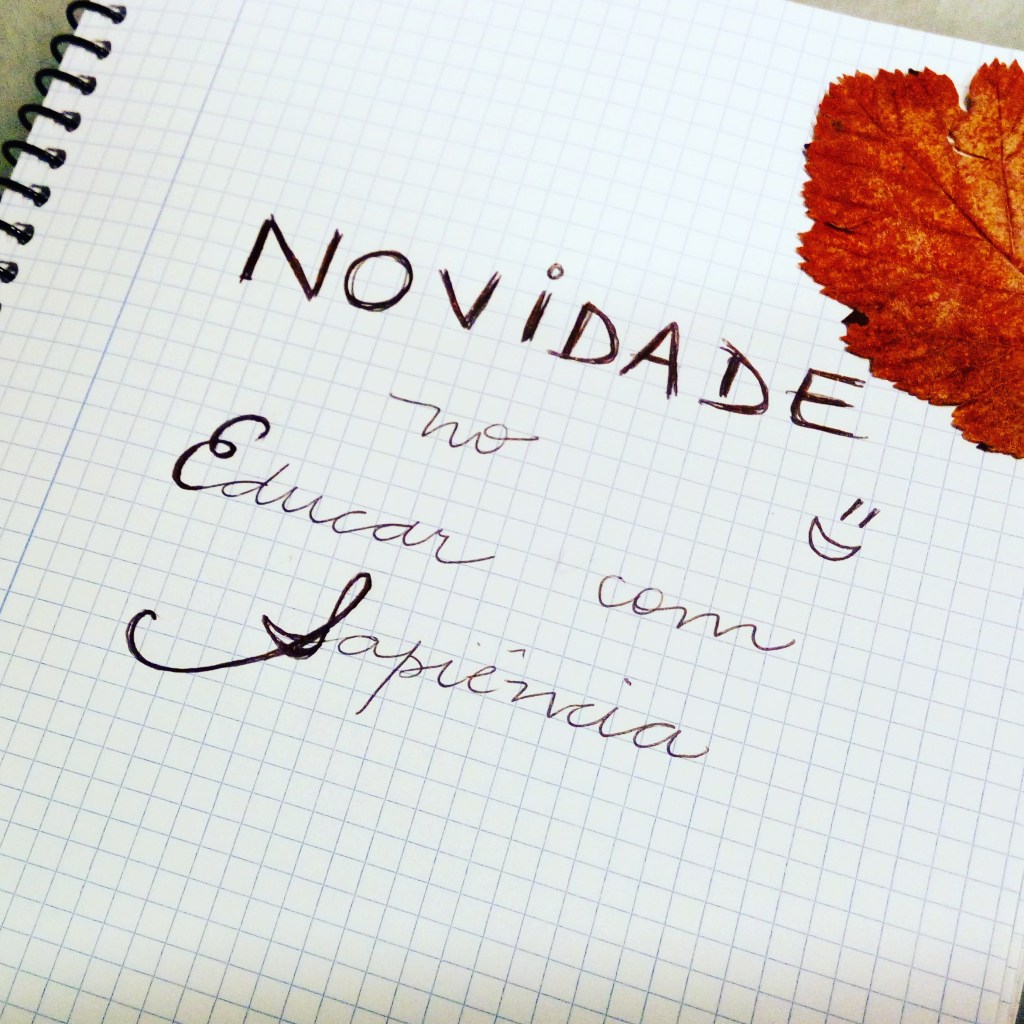 NOViDADE
no
Educar com
Sapiência